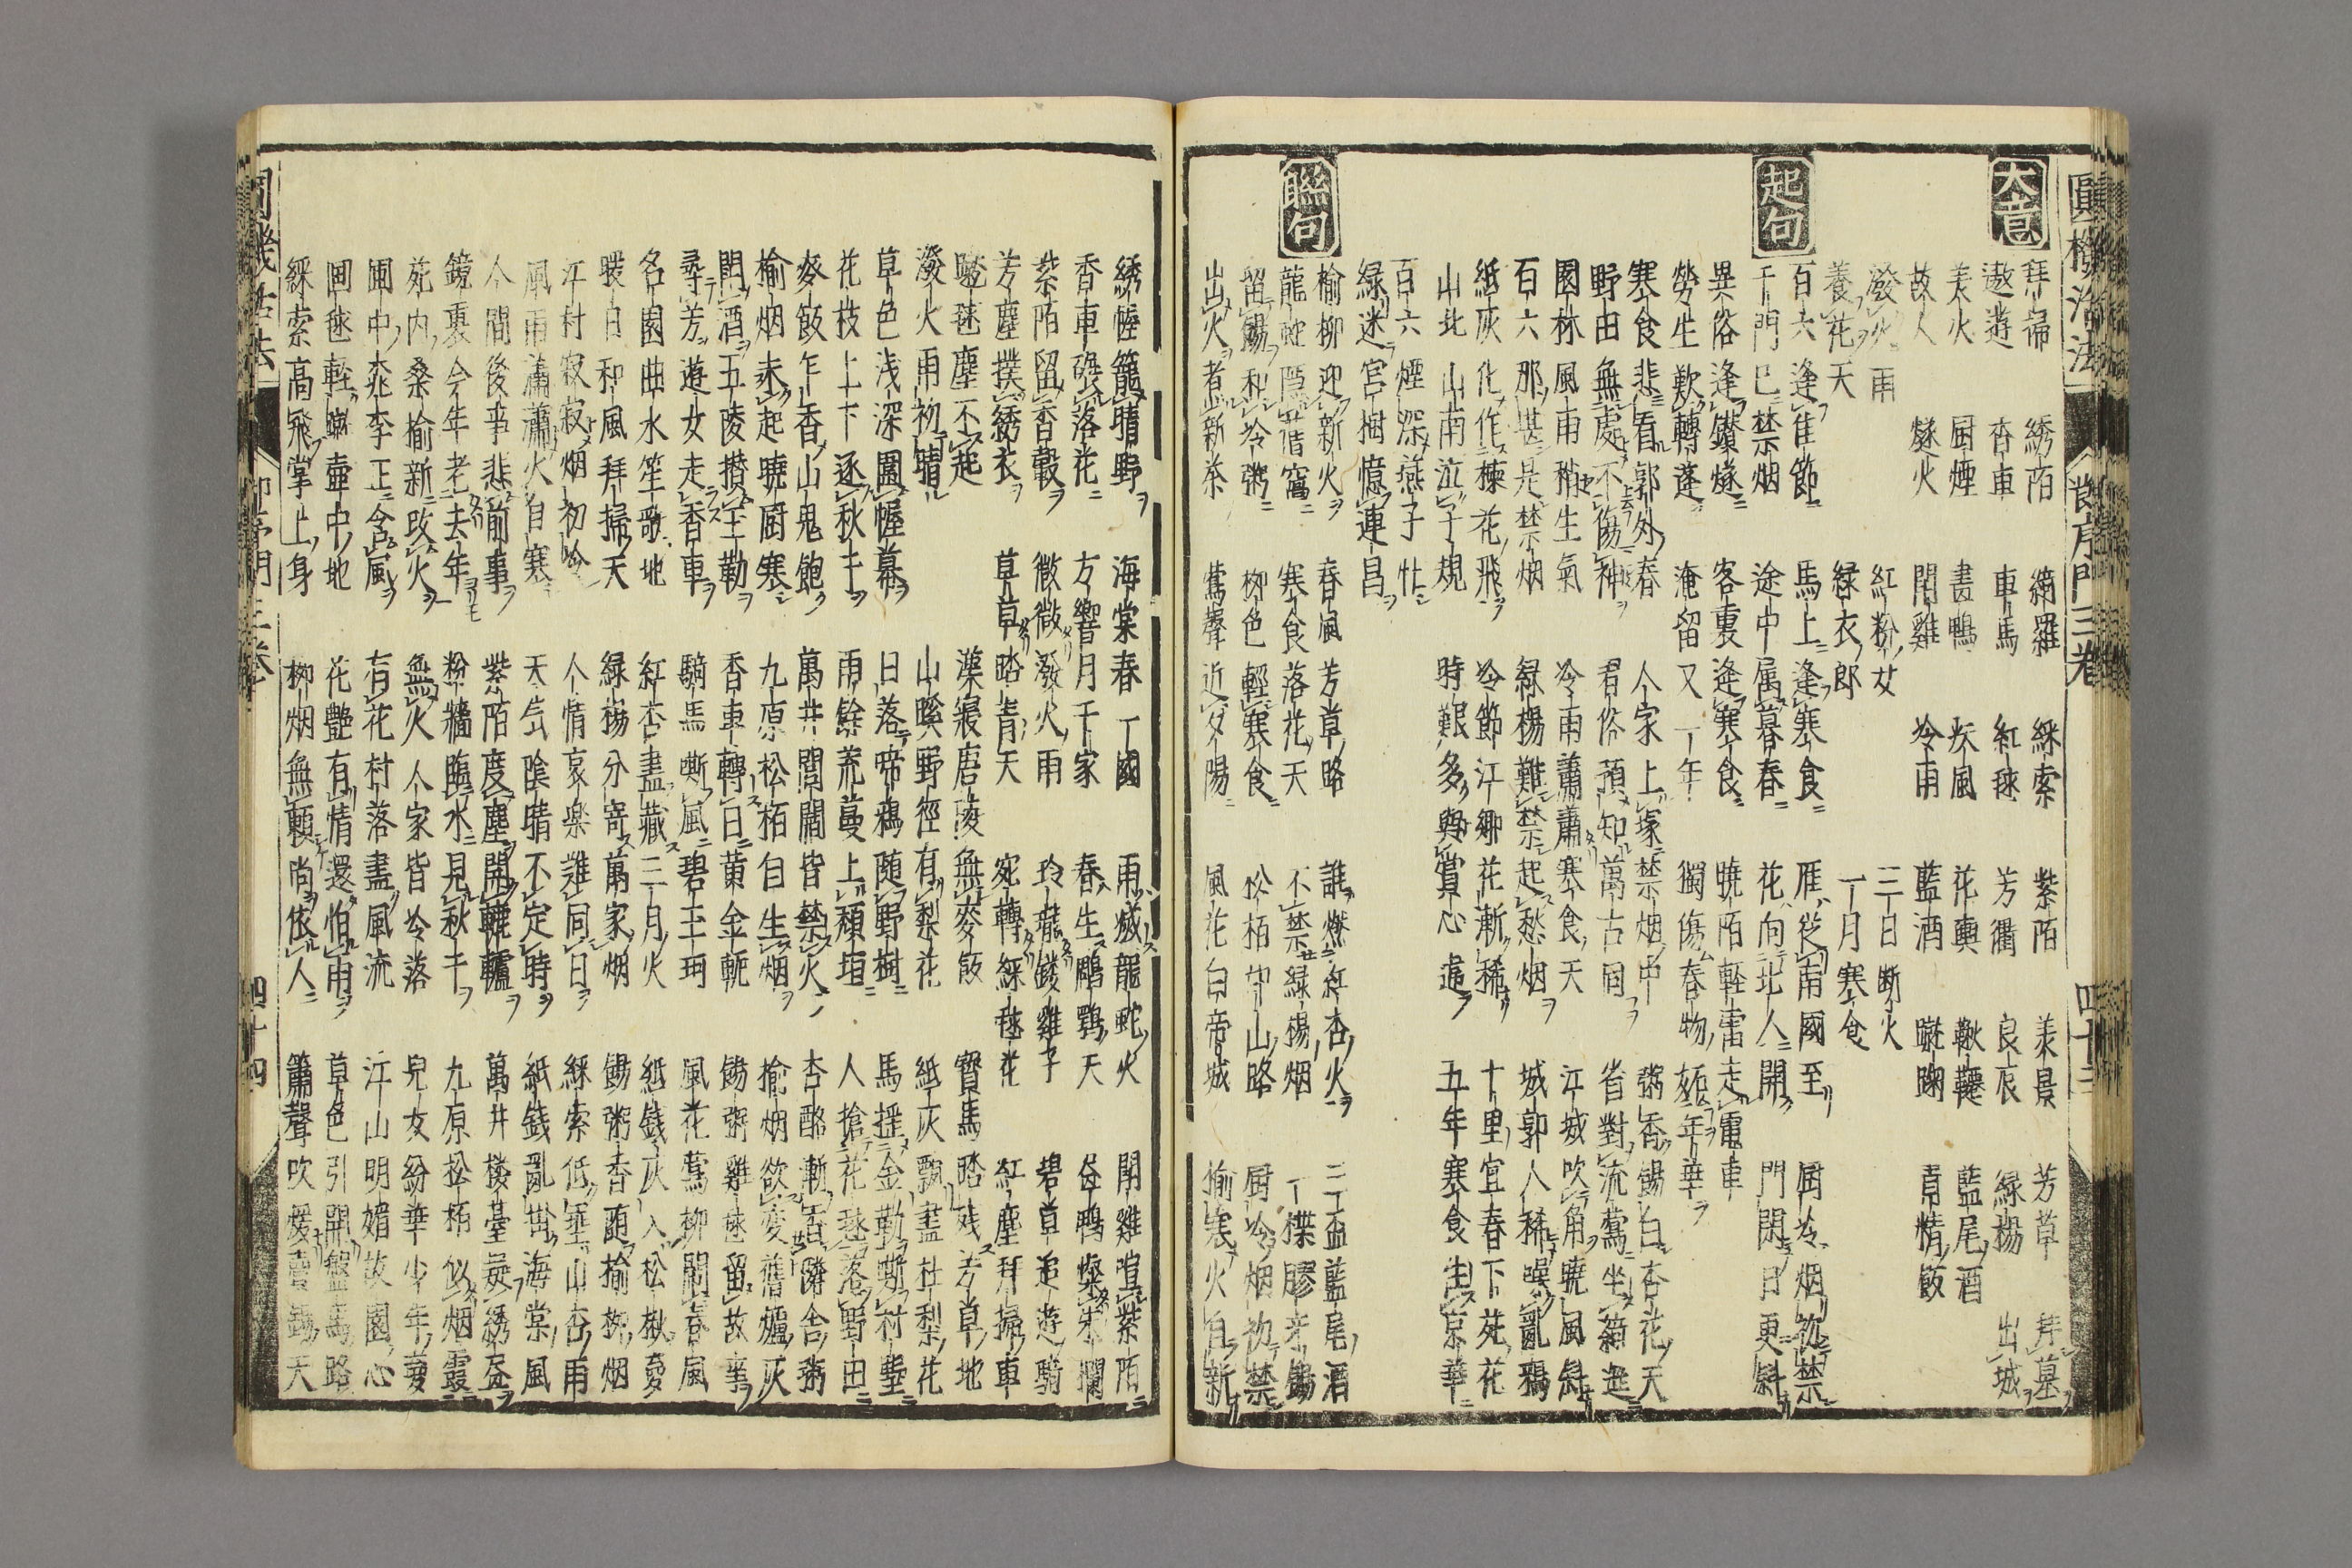 圓機活法 時序門三卷 四十三
大意
拜掃 綉陌 綺羅 綵索 紫陌 美景 芳草 拜墓
遨遊 香車 車馬 紅毬 芳衢 良辰 綠楊 出城
美火 厨煙 畫鴨 疾風 花輿 鞦韆 藍尾酒
故人 燧火 閗雞 冷雨 藍酒 蹴踘 青精飯
潑火雨 紅粉女 三日断火
養花天 緑衣郎 一月寒食
起句
百六逢佳節 馬上逢寒食 雁從南國至 厨冷烟初禁
千門已禁烟 途中属暮春 花向北人開 門閑日更斜
異俗逢鑽燧 客裏逢寒食 曉陌輕雷走電車
勞生歎轉蓬 淹留又一年 獨傷春物妬年華
寒食悲看郭外春 人家上塚禁烟中 粥香餳白杏花天
野田無處不傷神 君俗預知萬古同 省對流鶯坐綺筵
園林風雨稍生氣 冷雨蕭蕭寒食天 江城吹角曉風斜
百六那堪是禁烟 緑楊難禁起愁烟 城郭人稀噪亂鴉
紙灰化作棟花飛 冷節江郷花漸稀 十里宜春下苑花
山北山南泣子規 時艱多與賞心違 五年寒食在京華
百六煙深燕子忙
緑迷宮樹憶連昌
聯句
榆柳迎新火 春風芳草路 誰燃紅杏火 三盃藍尾酒
龍蛇隠舊窩 寒食落花天 不禁緑楊烟 一楪膠牙餳
留餳和冷粥 柳色輕寒食 松栢守山路 厨冷烟初禁
出火煮新茶 鶯聲近夕陽 風花白帝城 榆寒火自新
綉幄籠晴野 海棠春一國 雨蔵龍蛇火 閗雞喧紫陌
香車碾落花 方響月千家 春生鵰鶚天 畫鴨燦朱欄
紫陌留香轂 微微潑火雨 玲瓏鏤雞子 碧草追遊騎
芳塵撲綉衣 草草踏青天 宛轉綵毬花 紅塵拜掃車
蹴毬塵不起 漢寢唐陵無麥飯 寳馬踏残芳草地
潑火雨初晴 山蹊野徑有梨花 紙灰飄盡杜梨花
草色浅深圍幄幕 日落啼鴉随野樹 馬揺金勒嘶村壟
花枝上下逐秋千 雨餘荒蔓上頽垣 人搶花毬落野田
麥飯乍香山鬼飽 萬井閭閻皆禁火 杏酪漸香隣舎粥
榆烟未起曉厨寒 九原松栢自生烟 榆烟欲変舊爐灰
閗酒五陵攢玉勒 香車轉日黄金軛 餳粥雞毬留故事
尋芳遊女走香車 驕馬嘶風碧玉珂 風花鶯柳鬪春風
名園曲水笙歌地 紅杏盡藏三月火 紙錢灰入松楸夢
暖日和風拜掃天 緑楊分寄萬家烟 餳粥香随榆柳烟
江村寂寂烟初冷 人情哀樂雖同日 綵索低垂山杏雨
風雨瀟瀟火自寒 天気陰晴不定時 紙錢亂掛海棠風
人間後事悲前事 紫陌度塵開轆轤 萬井樓臺疑綉畫
鏡裏今年老去年 粉牆臨水見秋千 九原松栢似烟霞
苑内桑榆新改火 無火人家皆冷落 兒女紛華少年夢
園中桃李正含風 有花村落盡風流 江山明媚故園心
画毬輕蹴壷中地 花艶有情還怕雨 草色引開盤馬路
綵索高飛掌上身 柳烟無頼尚依人 簫聲吹暖賣餳天
圓機活法 時序門三卷 四十四